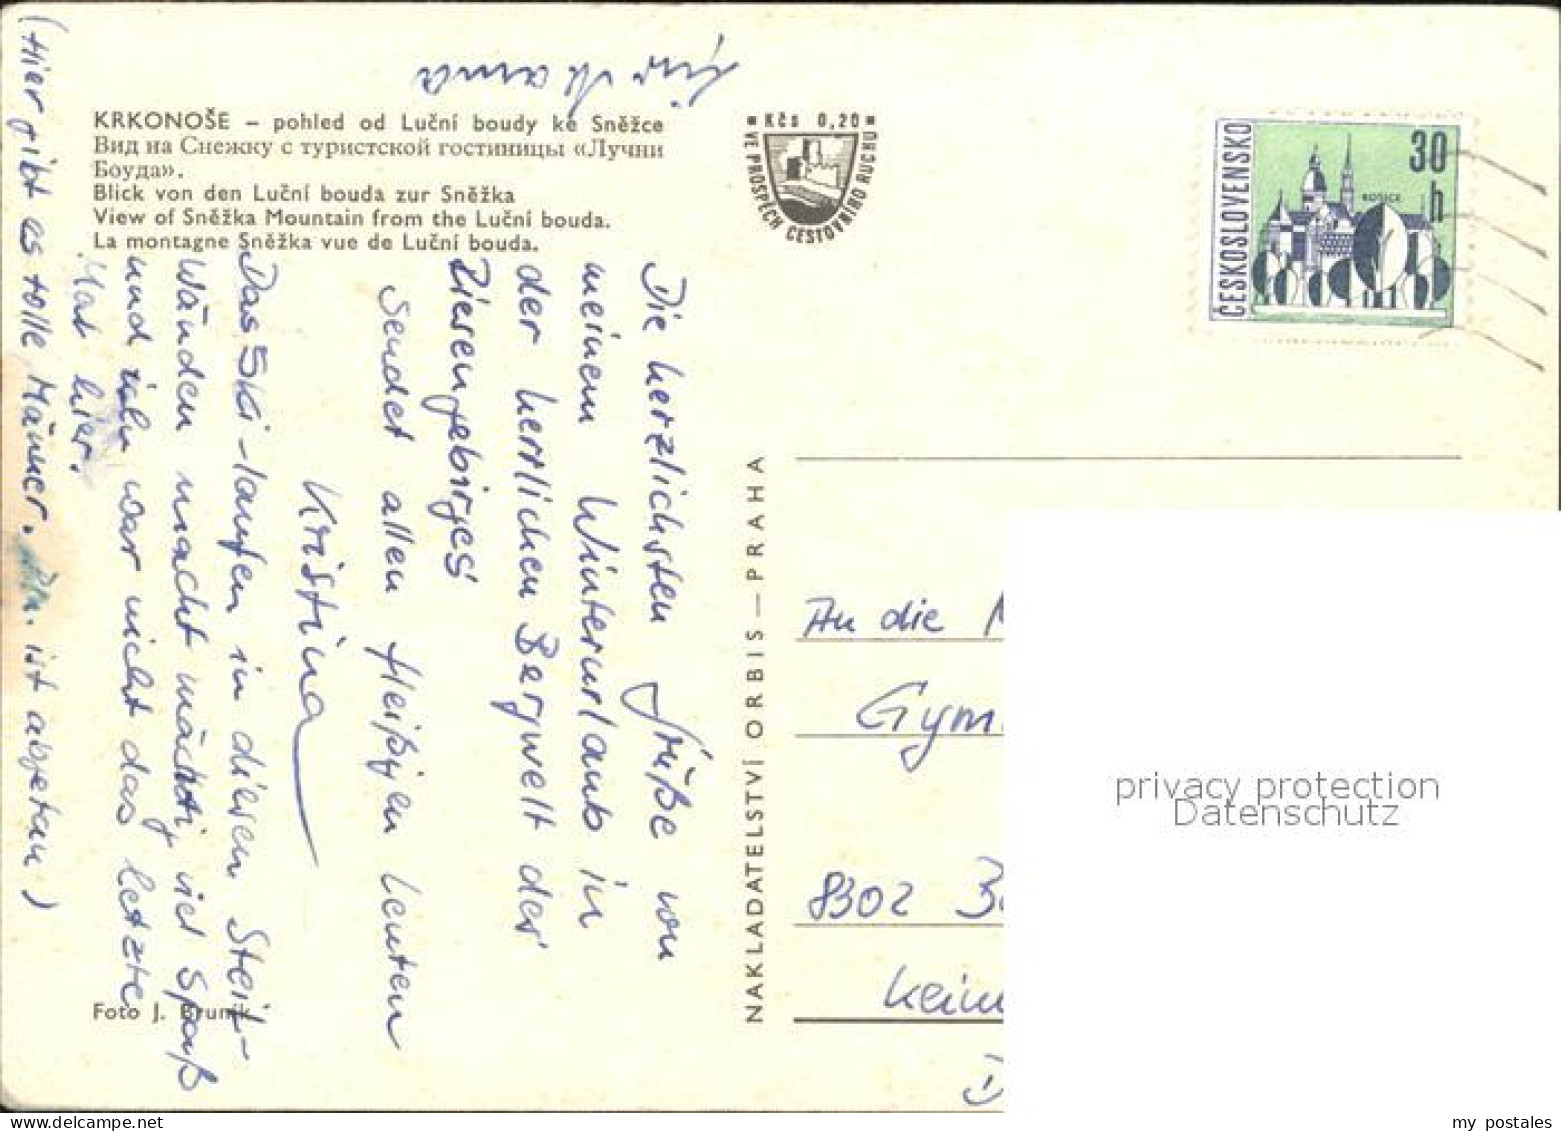 KRKONOŠE – pohled od Luční boudy ke Sněžce
Вид на Снежку с туристской гостиницы «Лучни
Боуда».
Blick von den Luční bouda zur Sněžka
View of Sněžka Mountain from the Luční bouda.
La montagne Sněžka vue de Luční bouda.
Kčs 0,20
VE PROSPĚCH CESTOVNÍHO RUCHU
ČESKOSLOVENSKO
30
h
KOŠICE
Die herzlichsten Grüße von
meinem Winterurlaub in
der herrlichen Bergwelt des
Riesengebirges
sendet allen fleißigen Leuten
Kristina
Das Ski-laufen in diesen Steil-
wänden macht mächtig viel Spaß
und ich war nicht das letzte
Mal hier.
(Hier gibt es tolle Männer. ist abgetan)
NAKLADATELSTVÍ ORBIS — PRAHA
An die
Gym
8302
keim
D
privacy protection
Datenschutz
Foto J. Bruník
my postales